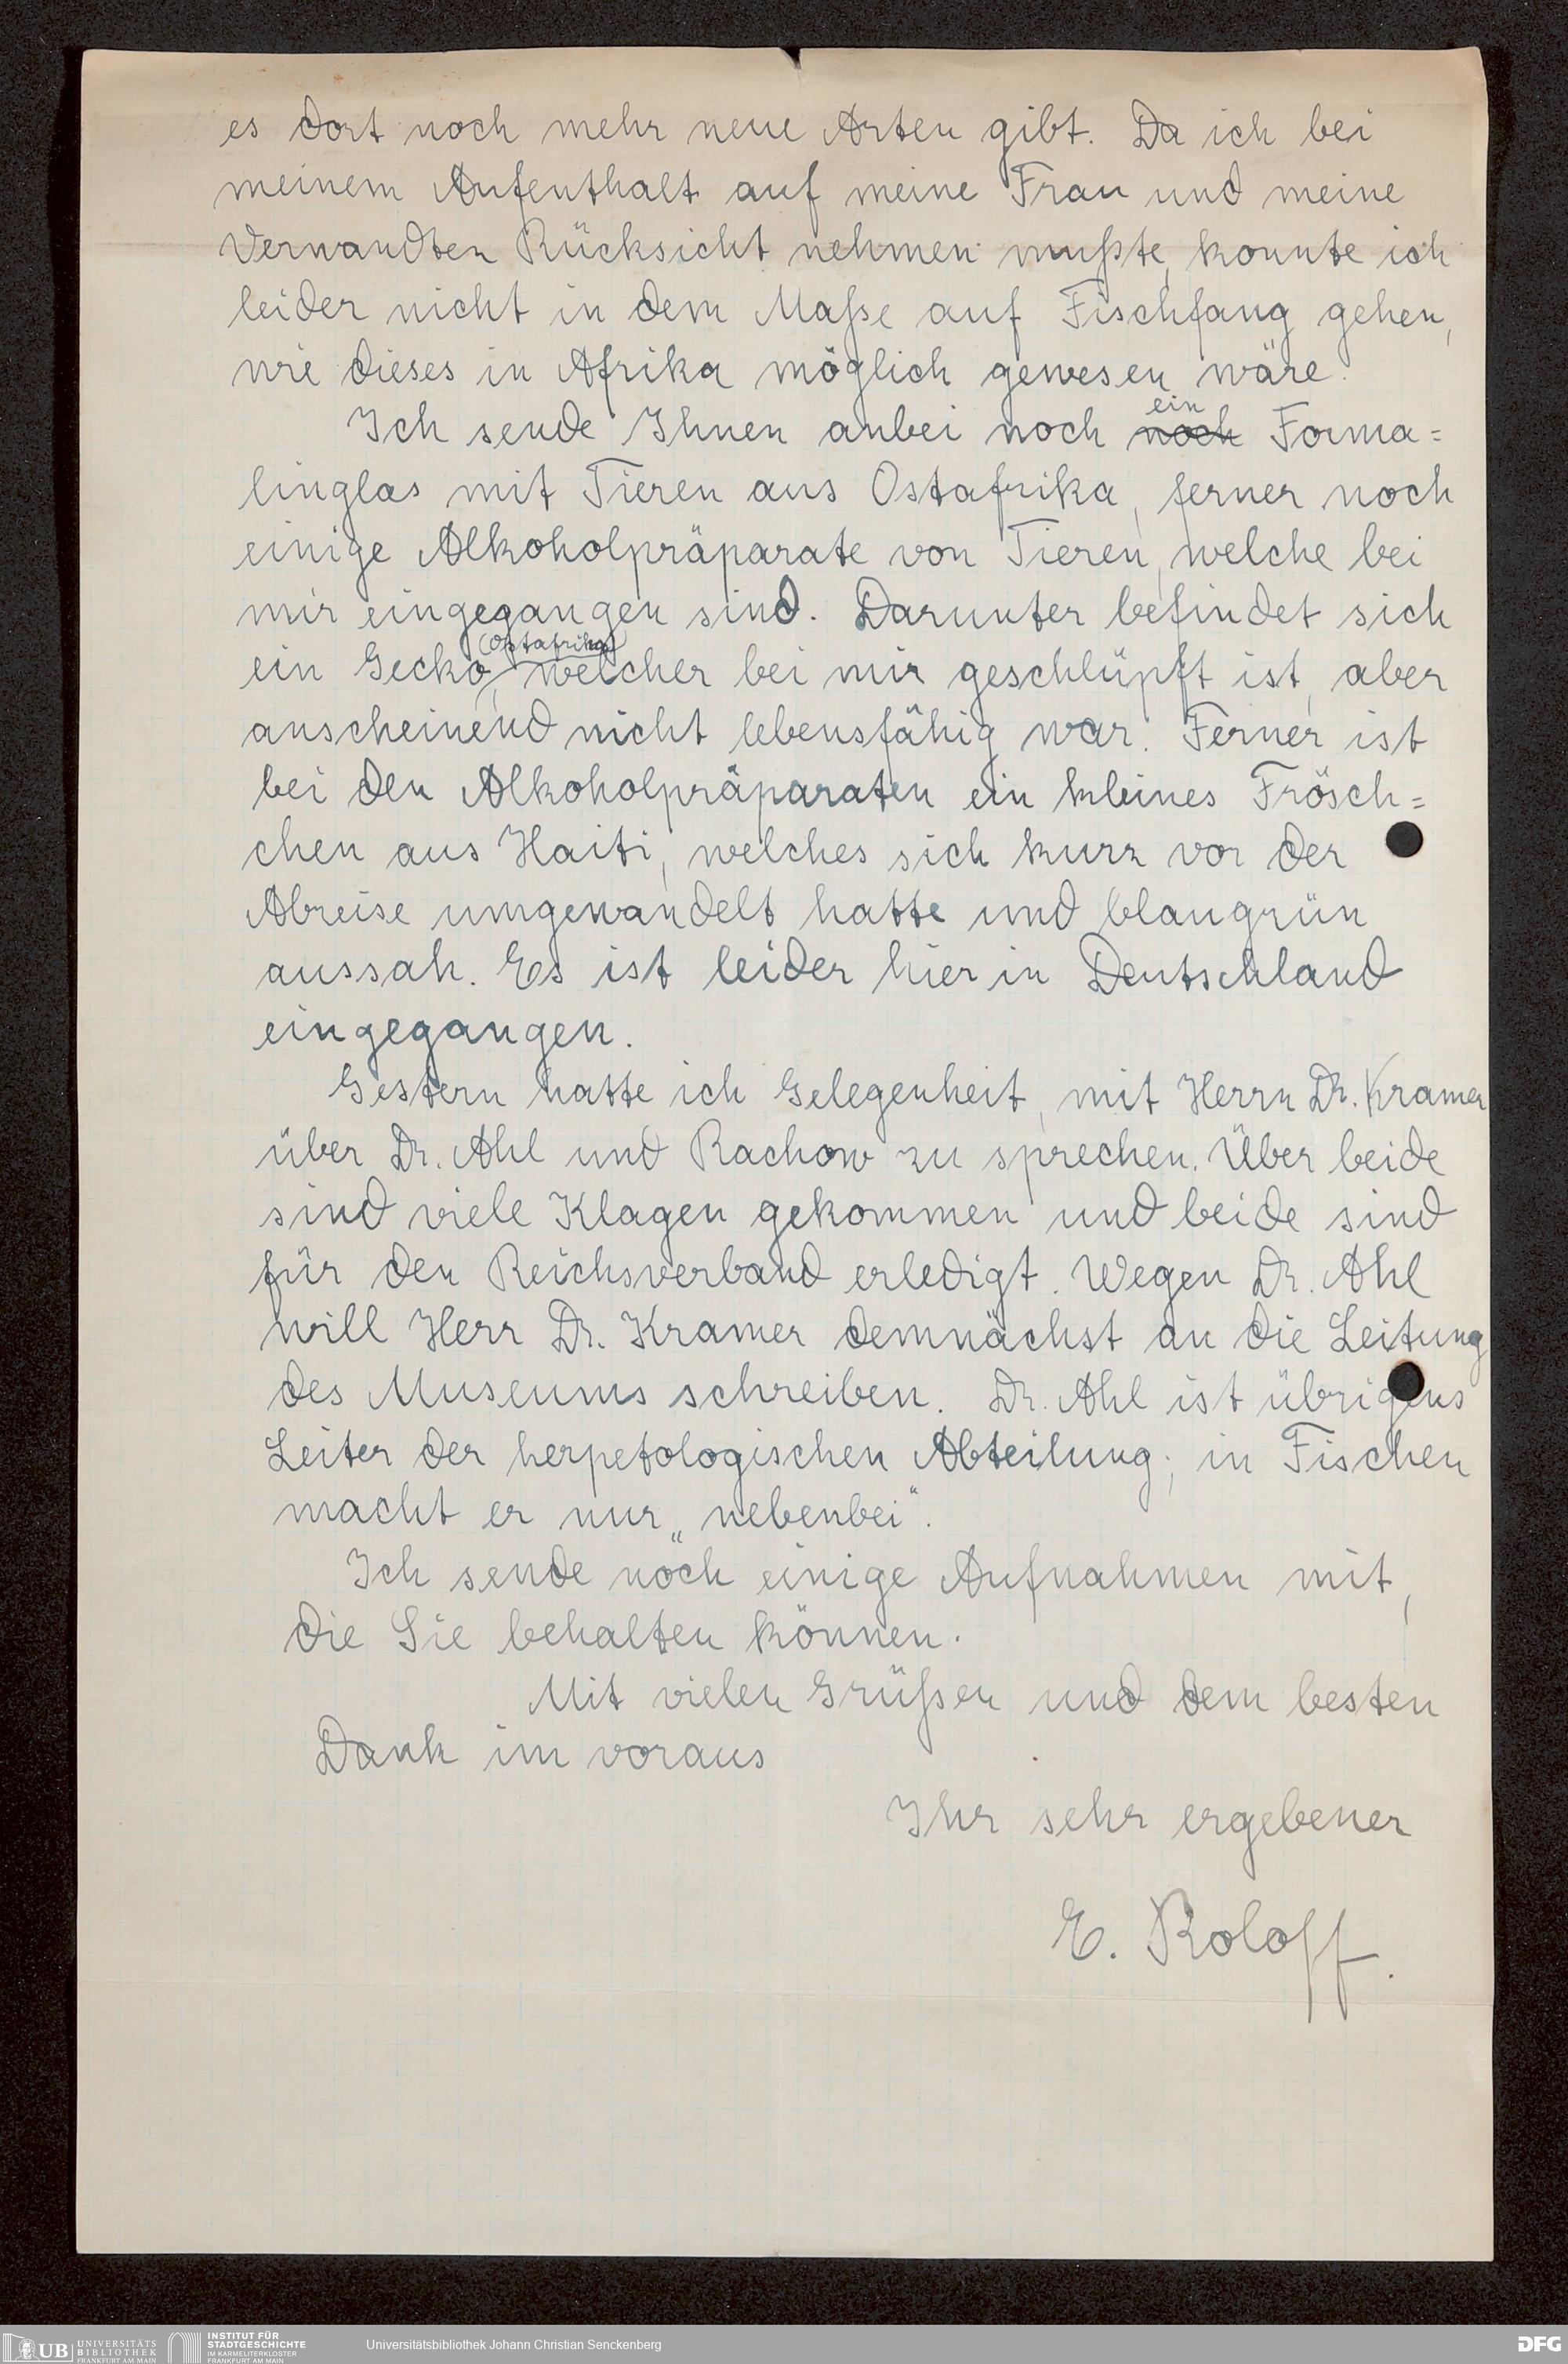 es dort noch mehr neue Arten gibt. Da ich bei
meinem Aufenthalt auf meine Frau und meine
Verwandten Rücksicht nehmen mußte, konnte ich
leider nicht in dem Maße auf Fischfang gehen,
wie dieses in Afrika möglich gewesen wäre.
Ich sende Ihnen anbei noch noch ein Forma=
linglas mit Tieren aus Ostafrika, ferner noch
einige Alkoholpräparate von Tieren, welche bei
mir eingegangen sind. Darunter befindet sich
ein Gecko (Ostafrika), welcher bei mir geschlüpft ist, aber
anscheinend nicht lebensfähig war. Ferner ist
bei den Alkoholpräparaten ein kleines Frösch=
chen aus Haiti, welches sich kurz vor der
Abreise umgewandelt hatte und blaugrün
aussah. Es ist leider hier in Deutschland
eingegangen.
Gestern hatte ich Gelegenheit, mit Herrn Dr. Kramer
über Dr. Ahl und Rachow zu sprechen. Über beide
sind viele Klagen gekommen und beide sind
für den Reichsverband erledigt. Wegen Dr. Ahl
will Herr Dr. Kramer demnächst an die Leitung
des Museums schreiben. Dr. Ahl ist übrigens
Leiter der herpetologischen Abteilung; in Fischen
macht er nur „nebenbei“.
Ich sende noch einige Aufnahmen mit,
die Sie behalten können.
Mit vielen Grüßen und dem besten
Dank im voraus
Ihr sehr ergebener
E. Roloff.
UB UNIVERSITÄTS
BIBLIOTHEK
FRANKFURT AM MAIN
INSTITUT FÜR
STADTGESCHICHTE
IM KARMELITERKLOSTER
FRANKFURT AM MAIN
Universitätsbibliothek Johann Christian Senckenberg
DFG